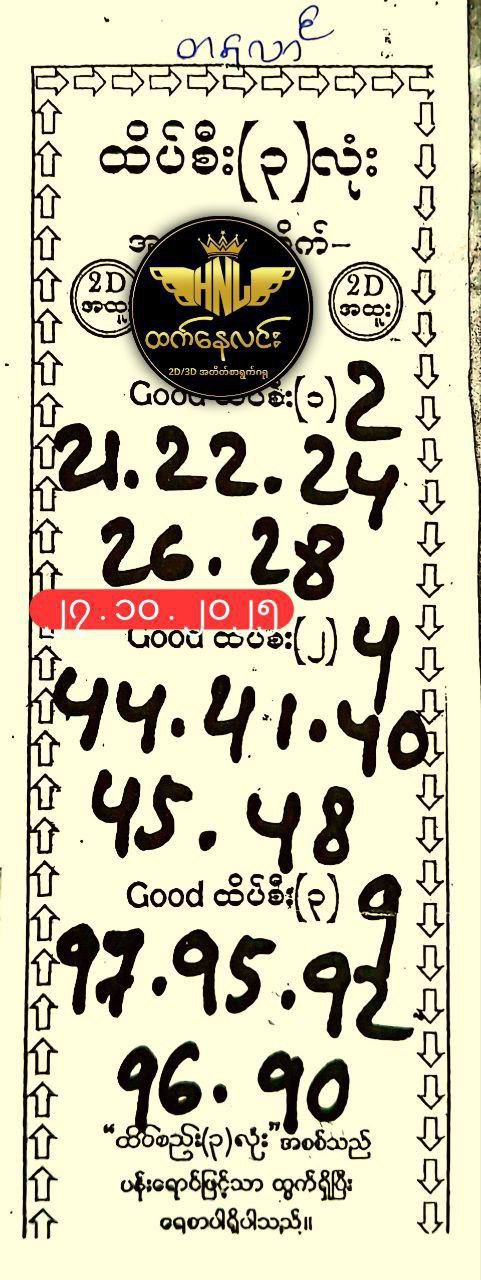 တစ်လာ်
ထိပ်စီး(၃)လုံး
2D
အထူး
HNL
ထက်နေလင်း
2D/3D အတိတ်စာရွက်ဂရု
2D
အထူး
Good ထိပ်စီး(၁) 2
21. 22. 24
26. 28
၂၇.၁၀.၂၀၂၅
Good ထိပ်စီး(၂) 4
44. 41. 40
45. 48
Good ထိပ်စီး(၃) 9
97. 95. 92
96. 90
“ထိပ်စည်း(၃)လုံး” အစစ်သည်
ပန်းရောင်ဖြင့်သာ ထွက်ရှိပြီး
ရေစာပါရှိပါသည်။